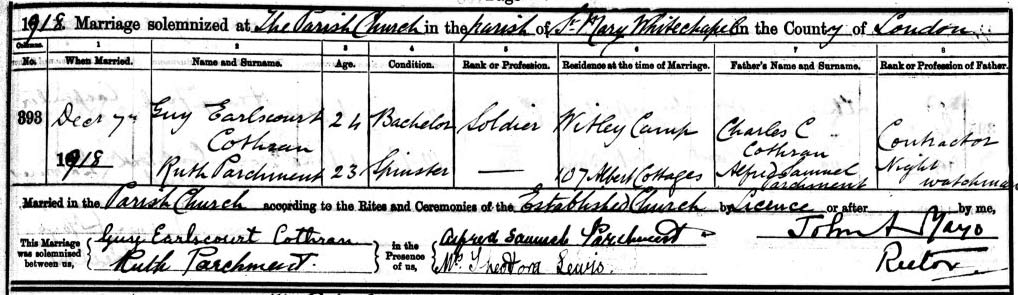 1918. Marriage solemnized at The Parish Church in the parish of St Mary Whitechapel in the County of London
Columns. 1 2 3 4 5 6 7 8
No. When Married. Name and Surname. Age. Condition. Rank or Profession. Residence at the time of Marriage. Father's Name and Surname. Rank or Profession of Father.
393 Decr 7th 1918 Guy Earlscourt Cothran 24 Bachelor Soldier Witley Camp Charles C Cothran Contractor
Ruth Parchment 23 Spinster — 107 Albert Cottages Alfred Samuel Parchment Night watchman
Married in the Parish Church according to the Rites and Ceremonies of the Established Church by Licence or after by me,
This Marriage was solemnized between us, Guy Earlscourt Cothran in the Presence of us, Alfred Samuel Parchment John A Mayo
Ruth Parchment. Mrs Lewis. Rector